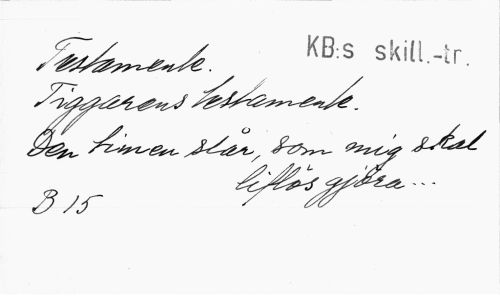 KB:s skill.-tr.
Testamente.
Tiggarens testamente.
Den timen slår, som mig skal
liflös gjöra...
B 15